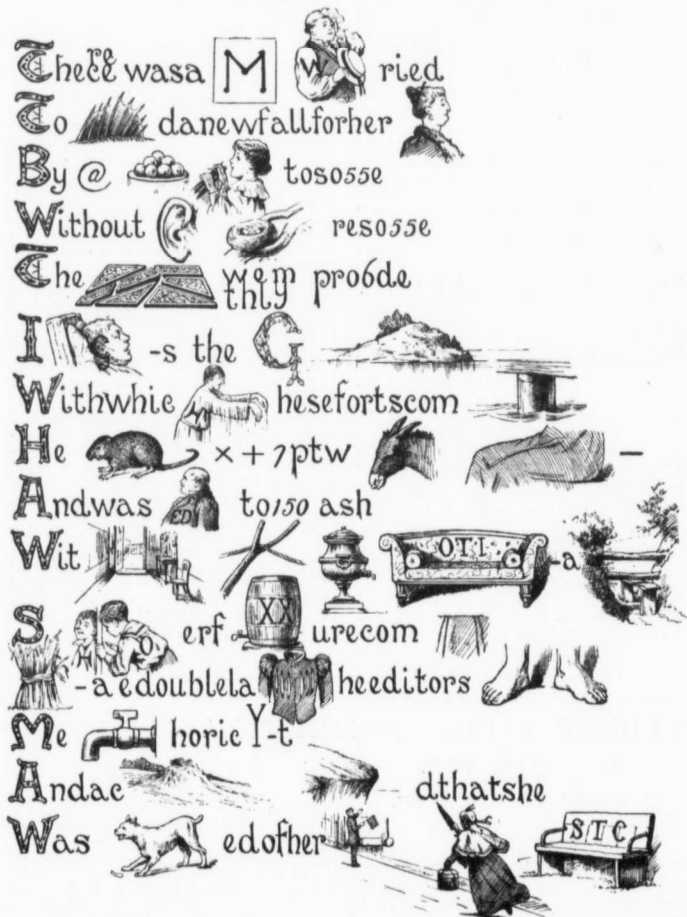 There re wasa M W ried
To danewfallforher
By @ tososse
Without resosse
The wem thly pro6de
I -s the G
Withwhic hesefortscom
He x + 7ptw -
Andwas ED to150 ash
Wit O.T.I. -a
S O erf XX urecom
-a edoublela heeditors
Me horic Y-t
Andac dthatshe
Was edofher S T C